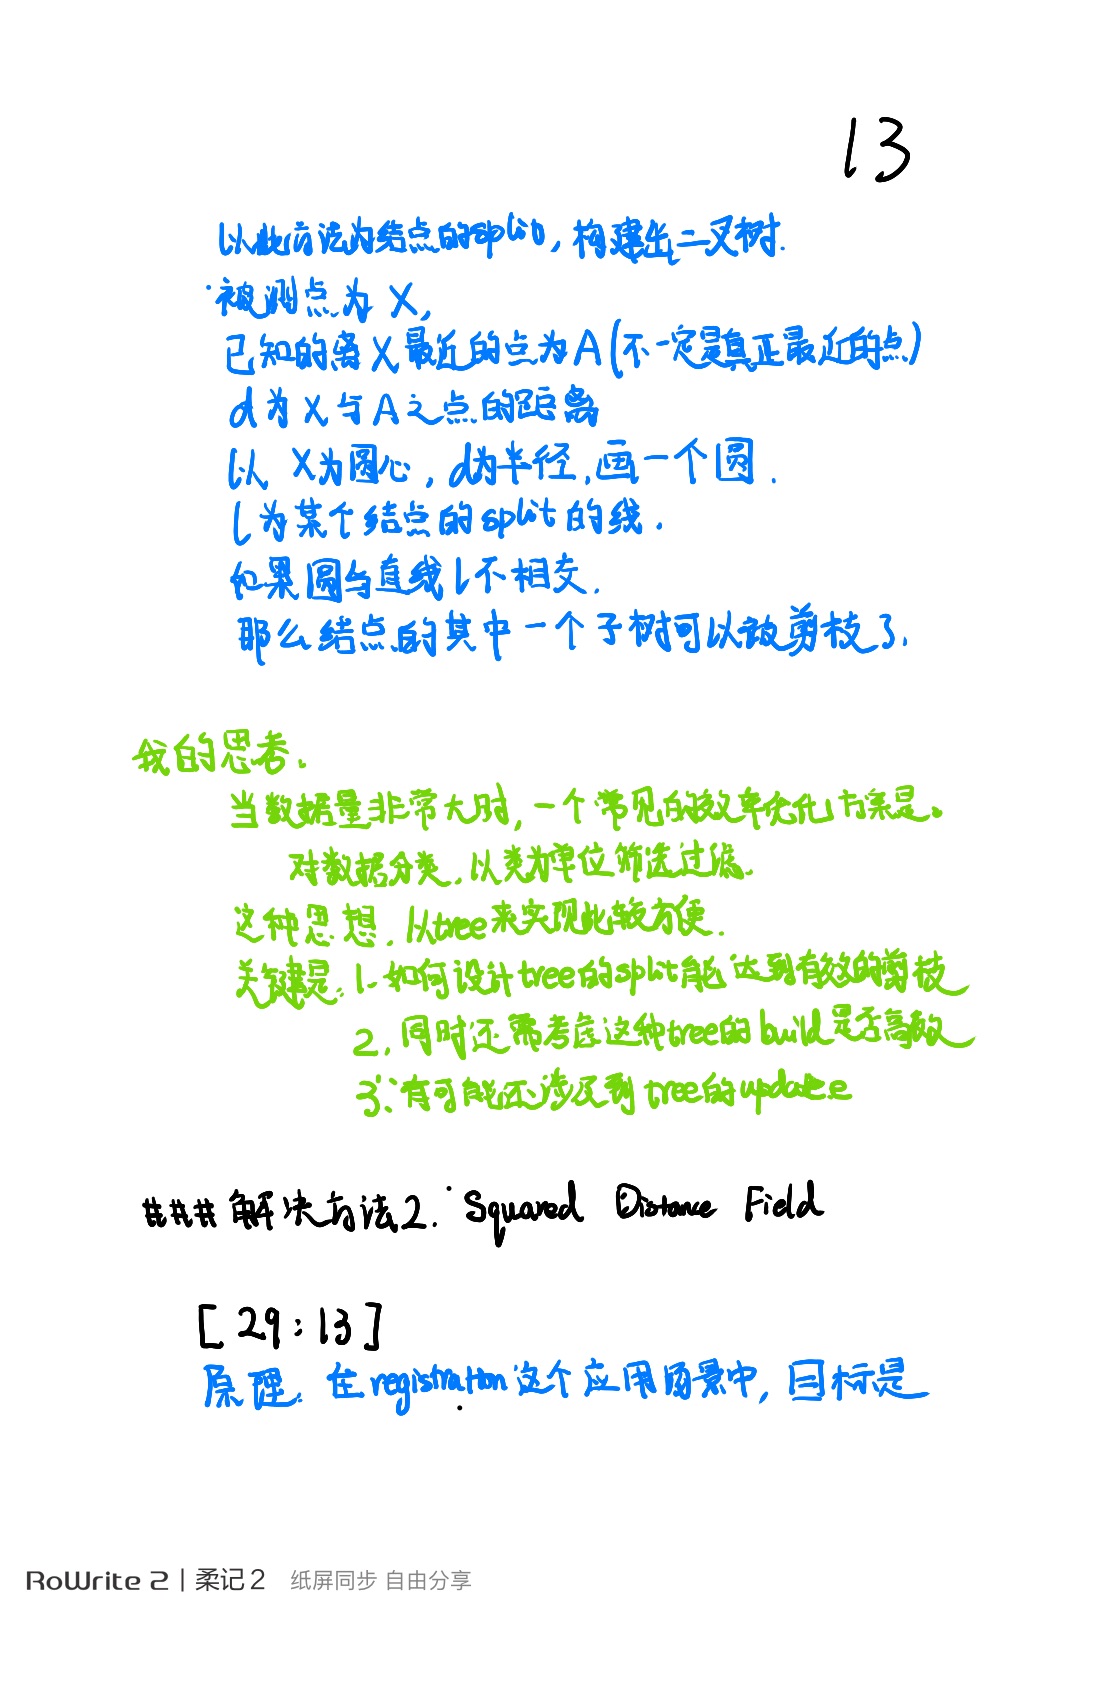 13
以此方法为结点的split,构建出二叉树.
被测点为X,
已知的离X最近的点为A(不一定是真正最近的点)
d为X与A之点的距离
以X为圆心,d为半径,画一个圆.
l为某个结点的split的线.
如果圆与直线l不相交.
那么结点的其中一个子树可以被剪枝了.
我的思考.
当数据量非常大时,一个常见的效率优化方案是。
对数据分类.以类为单位筛选过滤.
这种思想.以tree来实现比较方便.
关键是:1.如何设计tree的split能达到有效的剪枝
2.同时还需考虑这种tree的build是否高效
3.有可能还涉及到tree的update
###解决方法2.Squared Distance Field
[29:13]
原理.在registration这个应用场景中,目标是
RoWrite 2 | 柔记2 纸屏同步 自由分享